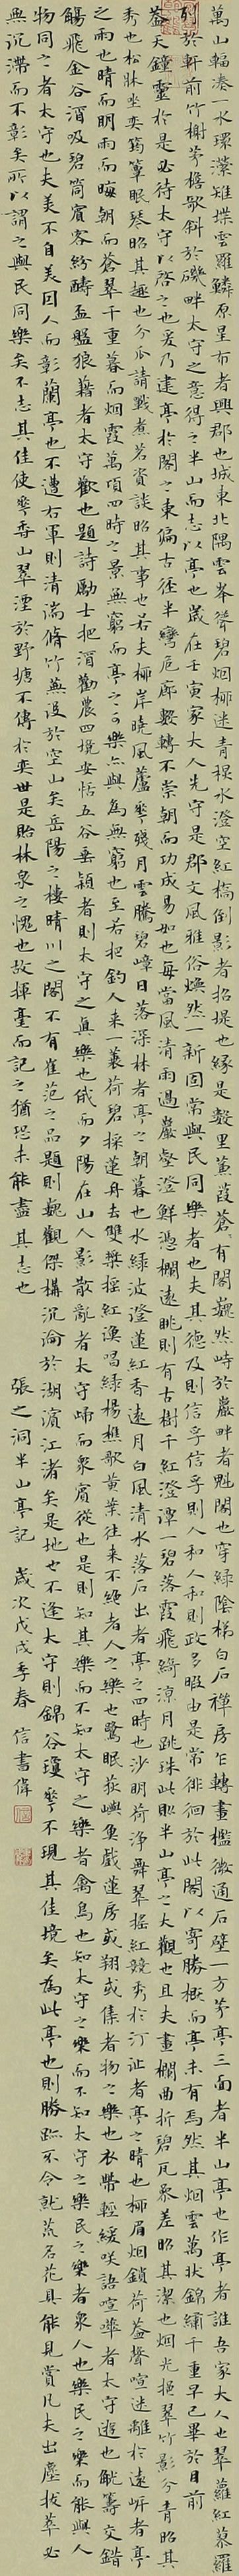 萬山輻湊一水環瀠雉堞雲羅鱗原星布者興郡也城東北隅雲峯聳碧烟柳迷青祿水澄空紅橋倒影者招提也緣是數里蒹葭蒼蒼有閣巍然峙於巖畔者魁閣也穿綠陰梯白石禪房乍轉畫檻微通石壁一方茅亭三面者半山亭也作亭者誰吾家大人也翠蘿紅蓼羅
列於軒前竹榭茅檐欹斜於磯畔太守之意得之半山而志以亭也歲在壬寅家大人先守是郡文風雅俗煥然一新固常與民同樂者也夫其德及則信孚信孚則人和人和則政多暇由是常徘徊於此閣以寄勝概而亭未有焉然其烟雲萬狀錦繡千重早已畢於目前
蓋天鐘靈於是必待太守以啓之也爰乃建亭於閣之東偏古徑半彎危廊數轉不崇朝而功成易如也每當風清雨過巖壑澄鮮憑欄遠眺則有古樹千紅澄潭一碧落霞飛綺涼月跳珠此則半山亭之大觀也且夫畫欄曲折碧瓦參差昭其潔也烟光挹翠竹影分青昭其
秀也松牀坐奕筠簟眠琴昭其趣也分瓜請戰煮茗資談昭其事也若夫柳岸曉風蘆花殘月雲騰碧嶂日落深林者亭之朝暮也水綠波澄蓮紅香遠月白風清水落石出者亭之四時也沙明荷淨舞翠搖紅競秀於汀沚者亭之晴也柳眉烟鎖荷蓋聲喧迷離於遠岸者亭
之雨也晴而明雨而晦朝而蒼翠千重暮而烟霞萬頃四時之景無窮而亭之可樂亦與為無窮也至若把釣人來一蓑荷碧採蓮舟去雙槳搖紅漁唱綠楊樵歌黃葉往來不絕者人之樂也鷺眠荻嶼魚戲蓮房或翔或集者物之樂也衣帶輕緩咲語喧嘩者太守遊也觥籌交錯
觴飛金谷酒吸碧筩賓客紛酬盃盤狼藉者太守歡也題詩勵士把酒勸農四境安恬五谷垂穎者則太守之真樂也俄而夕陽在山人影散亂者太守歸而衆賓從也是則知其樂而不知太守之樂者禽鳥也知太守之樂而不知太守之樂民之樂者衆人也樂民之樂而能與人
物同之者太守也夫美不自美因人而彰蘭亭也不遭右軍則清湍脩竹蕪沒於空山矣岳陽之樓晴川之閣不有崔范之品題則巍觀傑搆沉淪於湖濱江渚矣是地也不逢太守則錦谷瓊花不現其佳境矣為此亭也則勝跡不令就荒名花具能見賞凡夫出塵拔萃必
無沉滯而不彰矣所以謂之與民同樂矣不志其佳使花香山翠湮於野塘不傳於奕世是貽林泉之愧也故揮毫而記之猶恐未能盡其志也 張之洞半山亭記 歲次戊戌季春 信書偉